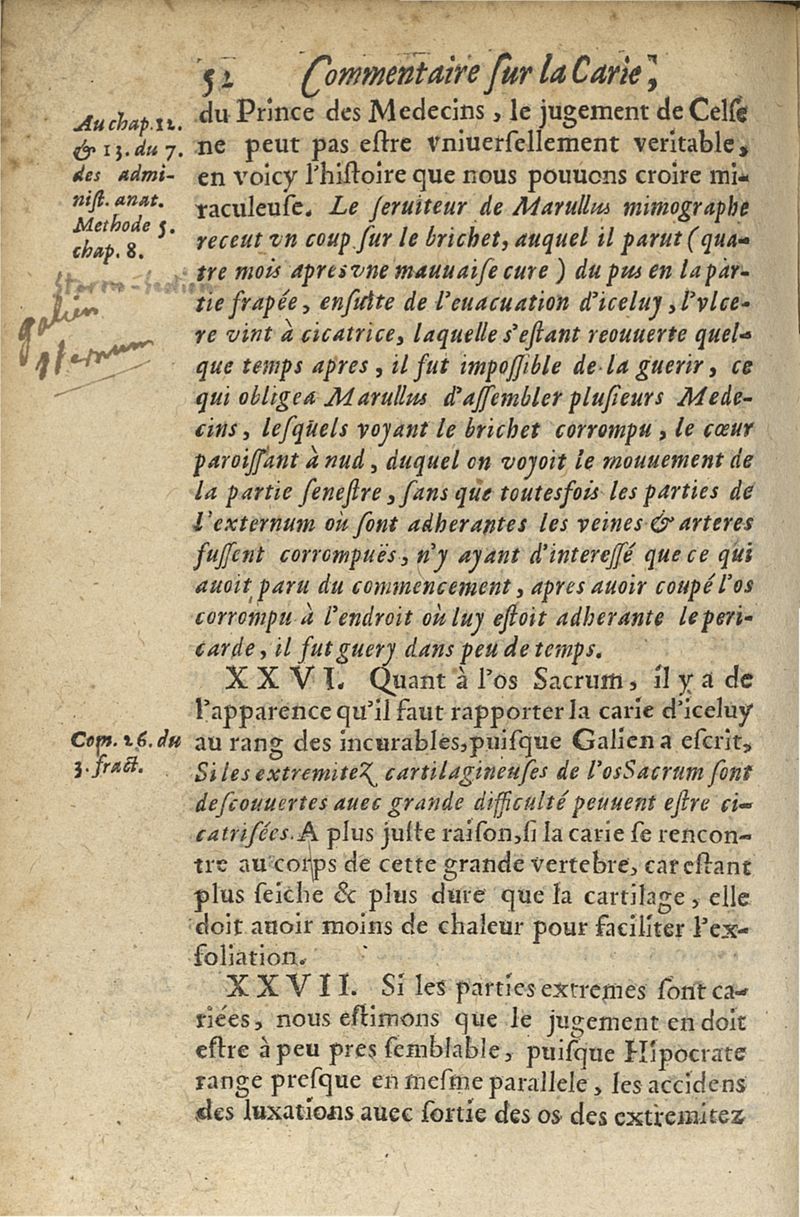 52 Commentaire ſur la Carie,
du Prince des Medecins, le jugement de Celſe
ne peut pas eſtre vniuerſellement veritable,
en voicy l'hiſtoire que nous pouuons croire mi-
raculeuſe. Le ſeruiteur de Marullus mimographe
receut vn coup ſur le brichet, auquel il parut (qua-
tre mois apres vne mauuaiſe cure) du pus en la par-
tie frapée, enſuite de l'euacuation d'iceluy, l'vlce-
re vint à cicatrice, laquelle s'eſtant reouuerte quel-
que temps apres, il fut impoſſible de la guerir, ce
qui obligea Marullus d'aſſembler pluſieurs Mede-
cins, leſquels voyant le brichet corrompu, le cœur
paroiſſant à nud, duquel on voyoit le mouuement de
la partie ſeneſtre, ſans que toutesfois les parties de
l'externum où ſont adherantes les veines & arteres
fuſſent corrompuës, n'y ayant d'intereſſé que ce qui
auoit paru du commencement, apres auoir coupé l'os
corrompu à l'endroit où luy eſtoit adherante le peri-
carde, il fut guery dans peu de temps.
XXVI. Quant à l'os Sacrum, il y a de
l'apparence qu'il faut rapporter la carie d'iceluy
au rang des incurables, puiſque Galien a eſcrit,
Si les extremitez cartilagineuſes de l'os Sacrum ſont
deſcouuertes auec grande difficulté peuuent eſtre ci-
catriſées. A plus juſte raiſon, ſi la carie ſe rencon-
tre au corps de cette grande vertebre, car eſtant
plus ſeiche & plus dure que la cartilage, elle
doit auoir moins de chaleur pour faciliter l'ex-
foliation.
XXVII. Si les parties extremes ſont ca-
riées, nous eſtimons que le jugement en doit
eſtre à peu pres ſemblable, puiſque Hipocrate
range preſque en meſme parallele, les accidens
des luxations auec ſortie des os des extremitez
Au chap. 12.
& 13. du 7.
des admi-
niſt. anat.
Methode 5.
chap. 8.
galien
sternum
Com. 26. du
3. fract.